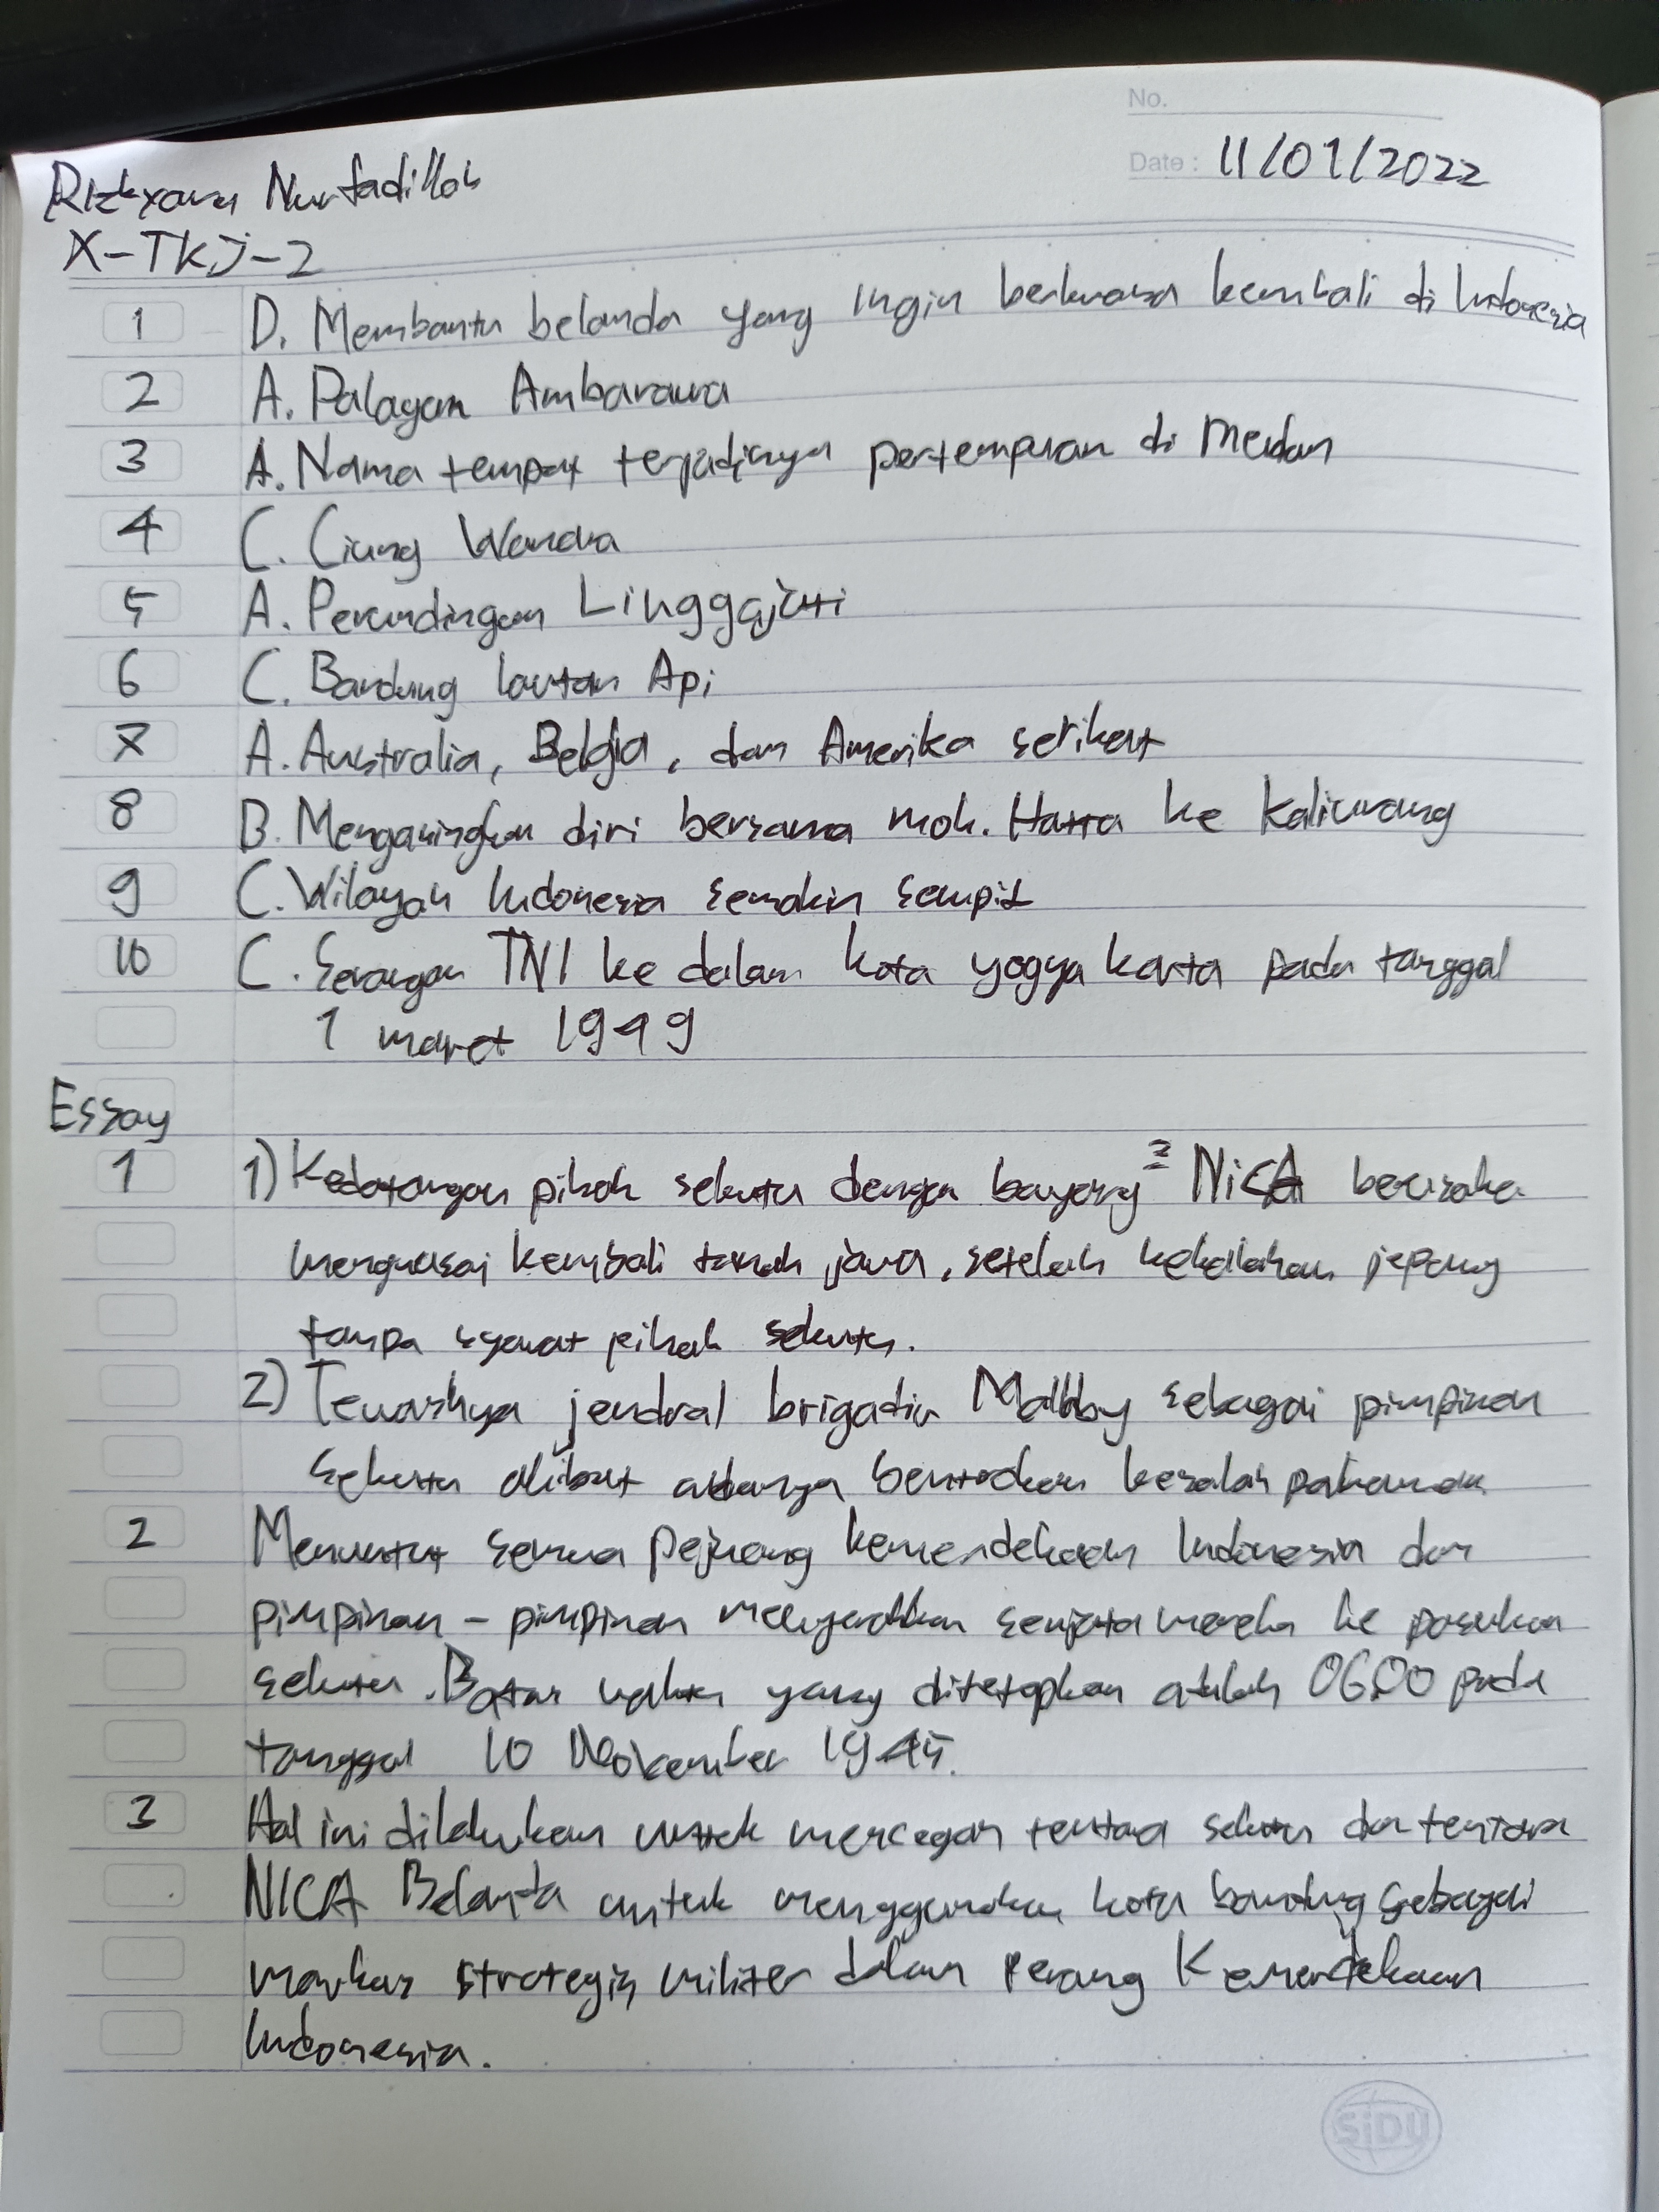 No.
Date : 11/01/2022
Nurfadillah
X-TKJ-2
1 D. Membantu belanda yang ingin berkuasa kembali di Indonesia
2 A. Palagan Ambarawa
3 A. Nama tempat terjadinya pertempuran di Medan
4 C. Ciung Wanara
5 A. Perundingan Linggajati
6 C. Bandung lautan Api
7 A. Australia, Belgia, dan Amerika serikat
8 B. Mengasingkan diri bersama moh. Hatta ke Kaliurang
9 C. Wilayah Indonesia semakin sempit
10 C. Serangan TNI ke dalam kota yogyakarta pada tanggal
1 maret 1949
Essay
1 1) Kedatangan pihak sekutu dengan NICA berusaha
menguasai kembali tanah jawa, setelah kekalahan jepang
tanpa syarat pihak sekutu.
2) Tewasnya jendral brigadir Mallaby sebagai pimpinan
sekutu akibat adanya bentrokan kesalah pahaman
2 Menuntut semua pejuang kemerdekaan Indonesia dan
pimpinan - pimpinan menyerahkan senjata mereka ke pasukan
sekutu. Batas waktu yang ditetapkan adalah 06.00 pada
tanggal 10 November 1945.
3 Hal ini dilakukan untuk mencegah tentara sekutu dan tentara
NICA Belanda untuk menggunakan kota bandung sebagai
markas strategis militer dalam perang Kemerdekaan
Indonesia.
SIDU